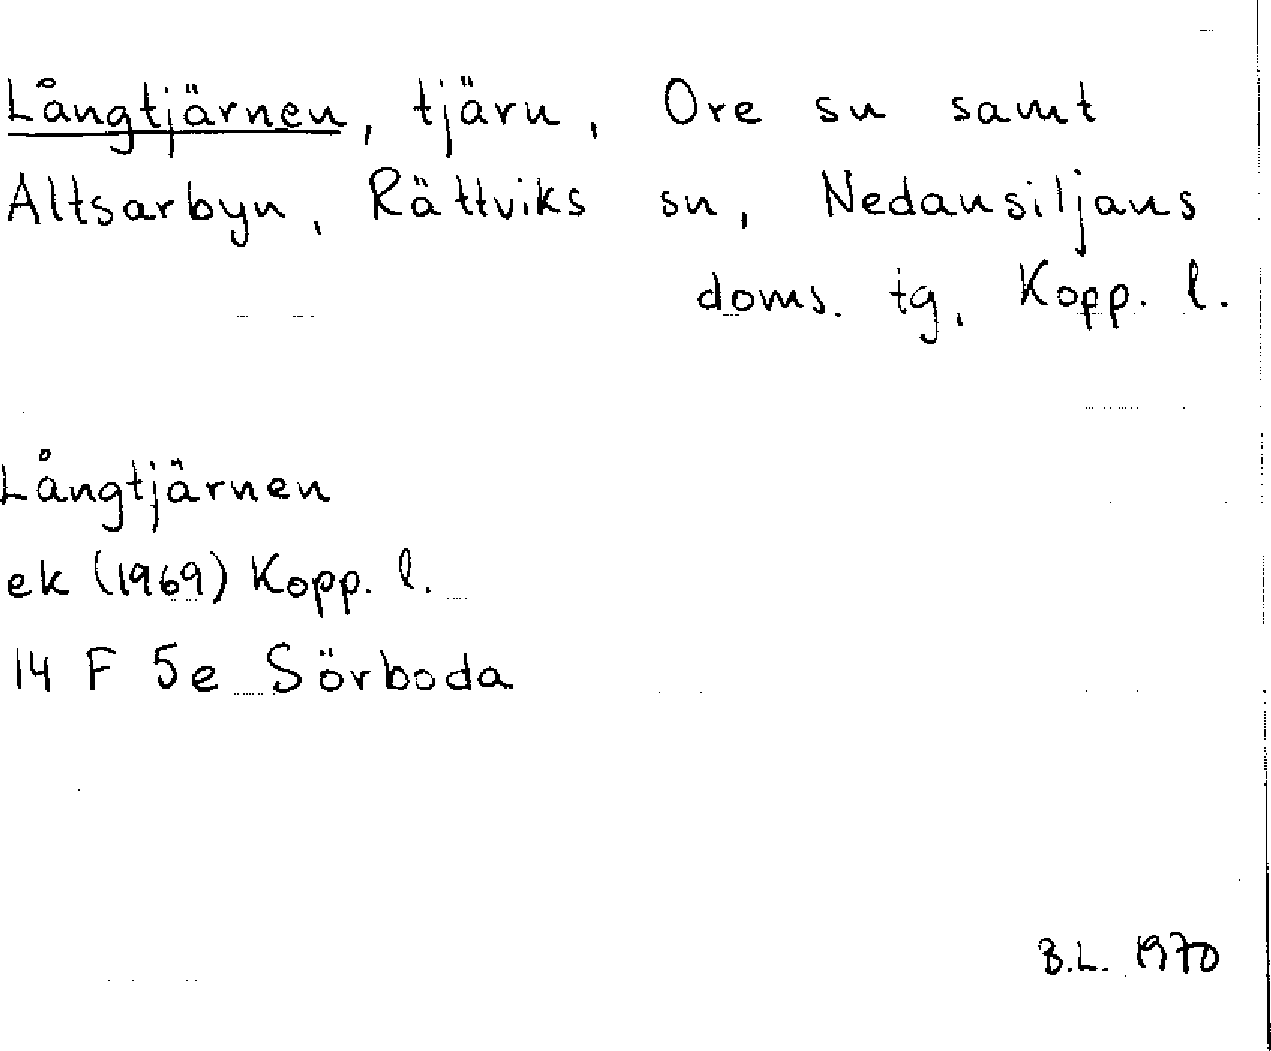 Långtjärnen, tjärn, Ore sn samt
Altsarbyn, Rättviks sn, Nedansiljans
doms. tg, Kopp. l.
Långtjärnen
ek (1969) Kopp. l.
14 F 5e Sörboda
B.L. 1970